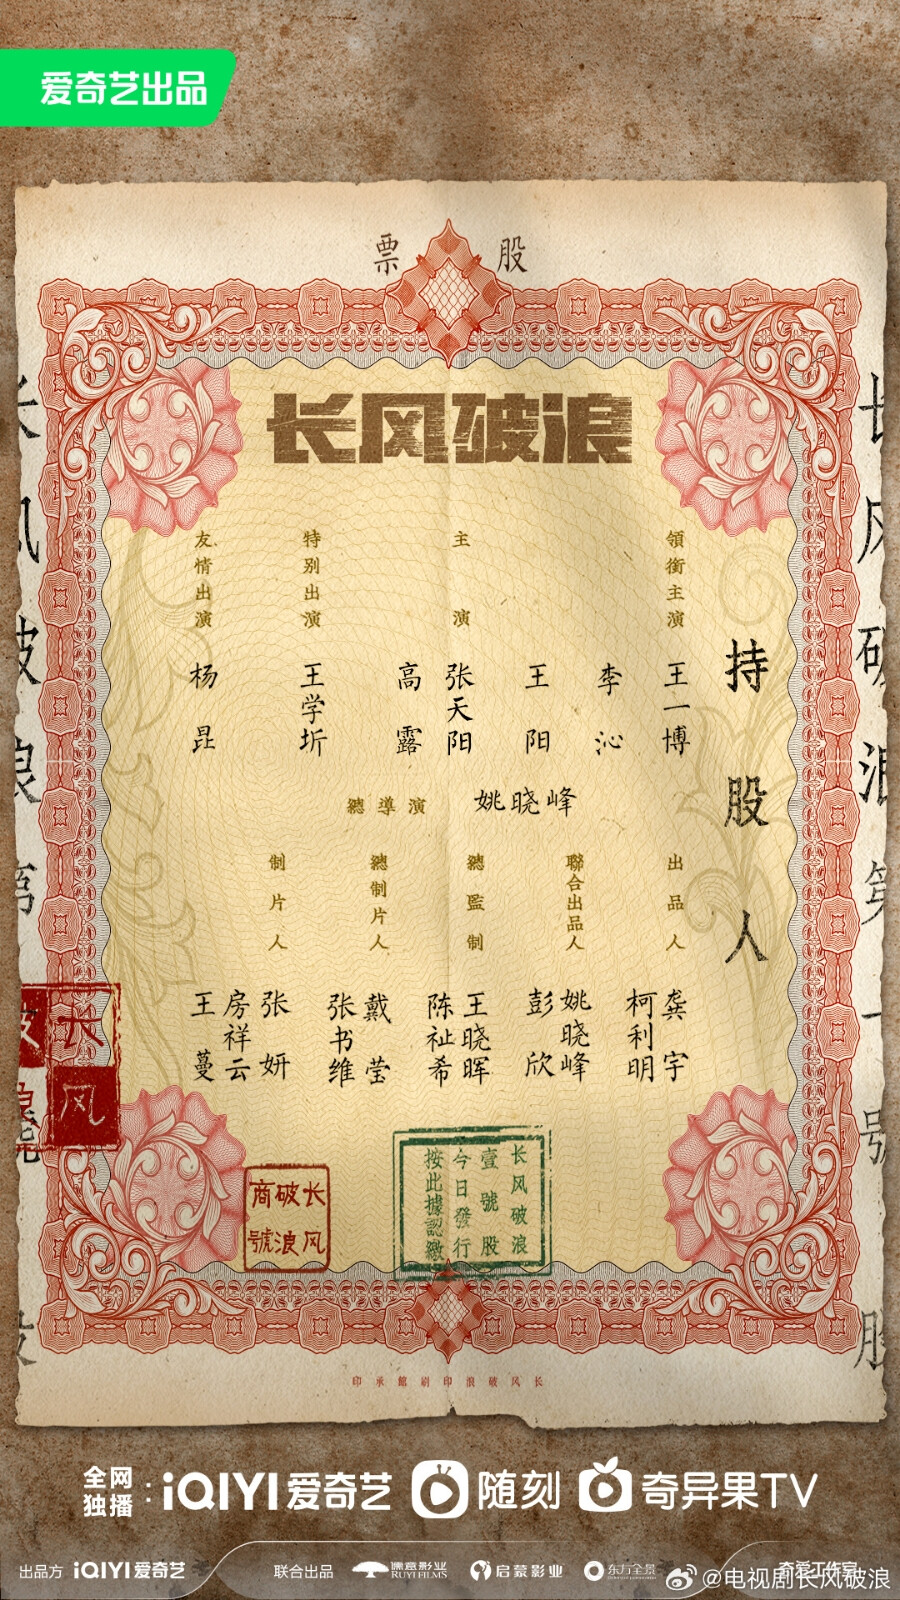 爱奇艺出品
股票
长风破浪
持股人
領銜主演
王一博
李沁
主演
王阳
张天阳
高露
特别出演
王学圻
友情出演
杨昆
總導演
姚晓峰
出品人
龚宇
柯利明
聯合出品人
姚晓峰
彭欣
總監制
王晓晖
陈祉希
總制片人
戴莹
张书维
制片人
张妍
房祥云
王蔓
长风破浪第一號
股
长风破浪第
长风
长风破浪商號
长风破浪
壹號股
今日發行
按此據認繳
长风破浪印刷館承印
全网独播：iQIYI爱奇艺 随刻 奇异果TV
出品方 iQIYI爱奇艺 联合出品 儒意影业 RUYI FILMS 启蒙影业 东方全景
@电视剧长风破浪